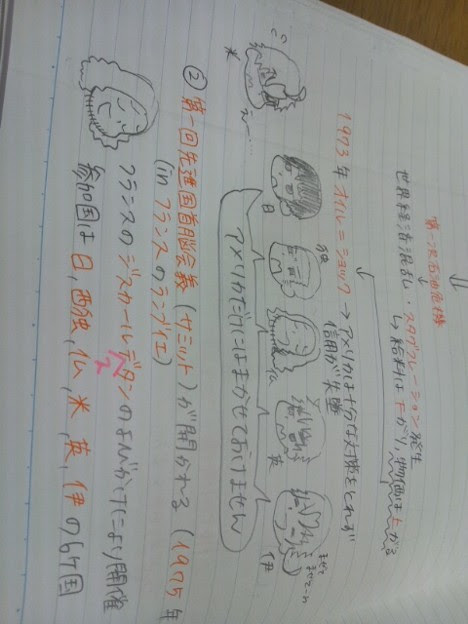 第一次石油危機
世界経済混乱・スタグフレーション発生
↳給料は下がり、物価は上がる
1973年 オイル=ショック → アメリカは十分な対策をとれず
信用が失墜
米
え〜…
日
独
仏
英
伊
まぜて
まぜて〜
アメリカだけにはまかせておけません
② 第一回先進国首脳会議(サミット)が開かれる(1975年
(in フランスのランブイエ)
フランスのジスカールデスタンのよびかけにより開催
参加国は 日, 西独, 仏, 米, 英, 伊 の6ヶ国